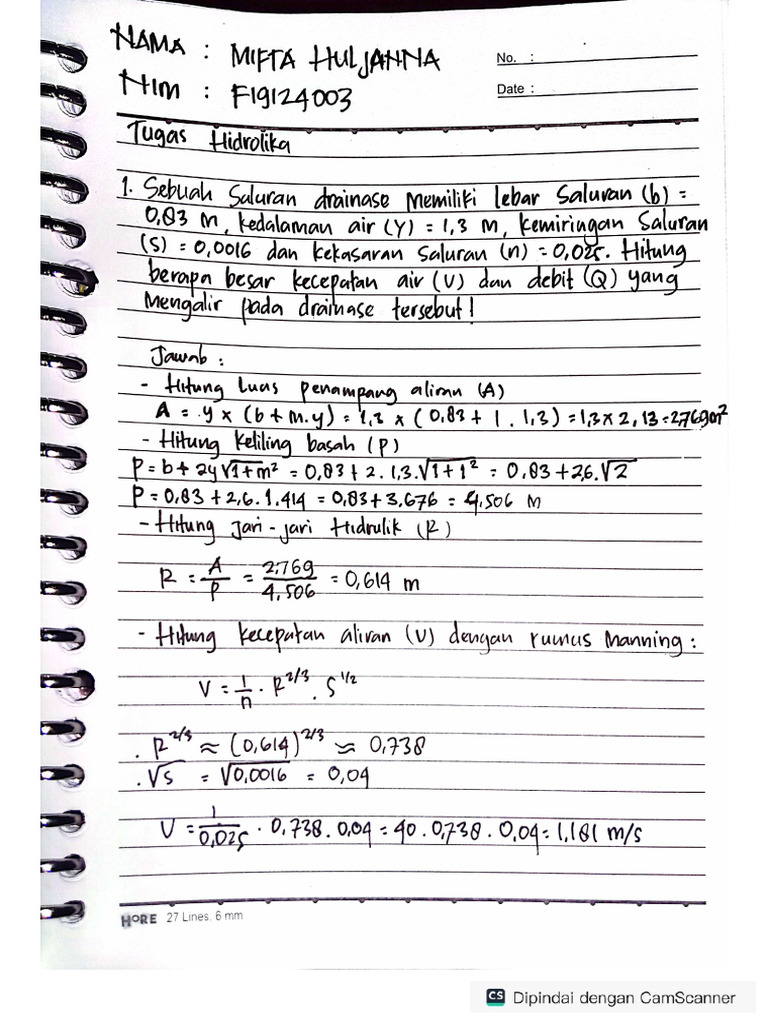 NAMA : MIFTA HULJANNA
No. :
NIM : F19124003
Date :
Tugas Hidrolika
1. Sebuah Saluran drainase Memiliki lebar Saluran (b) =
0,83 M, kedalaman air (Y) = 1,3 M, kemiringan Saluran
(S) = 0,0016 dan kekasaran Saluran (n) = 0,025. Hitung
berapa besar kecepatan air (V) dan debit (Q) yang
Mengalir pada drainase tersebut!
Jawab :
- Hitung Luas Penampang aliran (A)
A = y x (b + m.y) = 1,3 x (0,83 + 1 . 1,3) = 1,3 x 2,13 = 2,769 m²
- Hitung Keliling basah (P)
P = b + 2y√1+m² = 0,83 + 2 . 1,3.√1+1² = 0,83 + 2,6.√2
P = 0,83 + 2,6 . 1.414 = 0,83 + 3,676 = 4,506 M
- Hitung Jari-jari Hidrulik (R)
R = A/P = 2,769/4,506 = 0,614 m
- Hitung kecepatan aliran (V) dengan rumus Manning :
V = 1/n . R^2/3 . S^1/2
. R^2/3 ≈ (0,614)^2/3 ≈ 0,738
. √S = √0,0016 = 0,04
V = 1/0,025 . 0,738 . 0,04 = 40 . 0,738 . 0,04 = 1,181 m/s
HORE 27 Lines. 6 mm
CS Dipindai dengan CamScanner